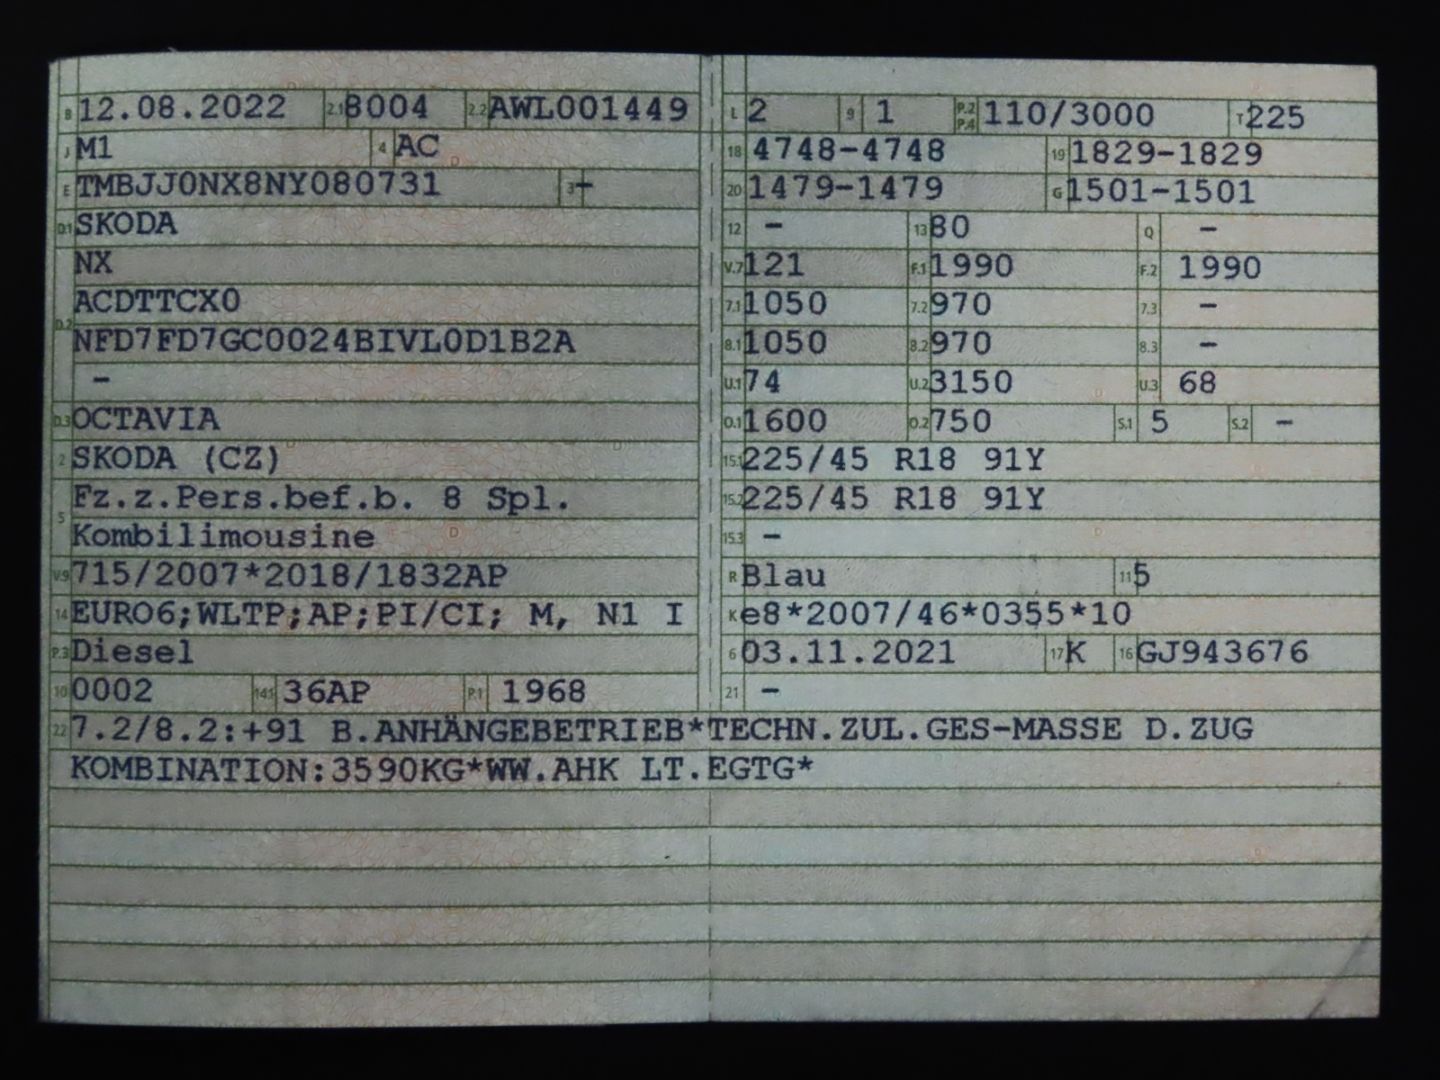 B 12.08.2022 2.1 8004 2.2 AWL001449
J M1 4 AC
E TMBJJ0NX8NY080731 3 -
D.1 SKODA
NX
D.2 ACDTTCX0
NFD7FD7GC0024BIVL0D1B2A
-
D.3 OCTAVIA
2 SKODA (CZ)
5 Fz.z.Pers.bef.b. 8 Spl.
Kombilimousine
V.9 715/2007*2018/1832AP
14 EURO6;WLTP;AP;PI/CI; M, N1 I
P.3 Diesel
10 0002 14.1 36AP P.1 1968
L 2 9 1 P.2 P.4 110/3000 T 225
18 4748-4748 19 1829-1829
20 1479-1479 G 1501-1501
12 - 13 80 Q -
V.7 121 F.1 1990 F.2 1990
7.1 1050 7.2 970 7.3 -
8.1 1050 8.2 970 8.3 -
U.1 74 U.2 3150 U.3 68
O.1 1600 O.2 750 S.1 5 S.2 -
15.1 225/45 R18 91Y
15.2 225/45 R18 91Y
15.3 -
R Blau 11 5
K e8*2007/46*0355*10
6 03.11.2021 17 K 16 GJ943676
21 -
22 7.2/8.2:+91 B.ANHÄNGEBETRIEB*TECHN.ZUL.GES-MASSE D.ZUG
KOMBINATION:3590KG*WW.AHK LT.EGTG*